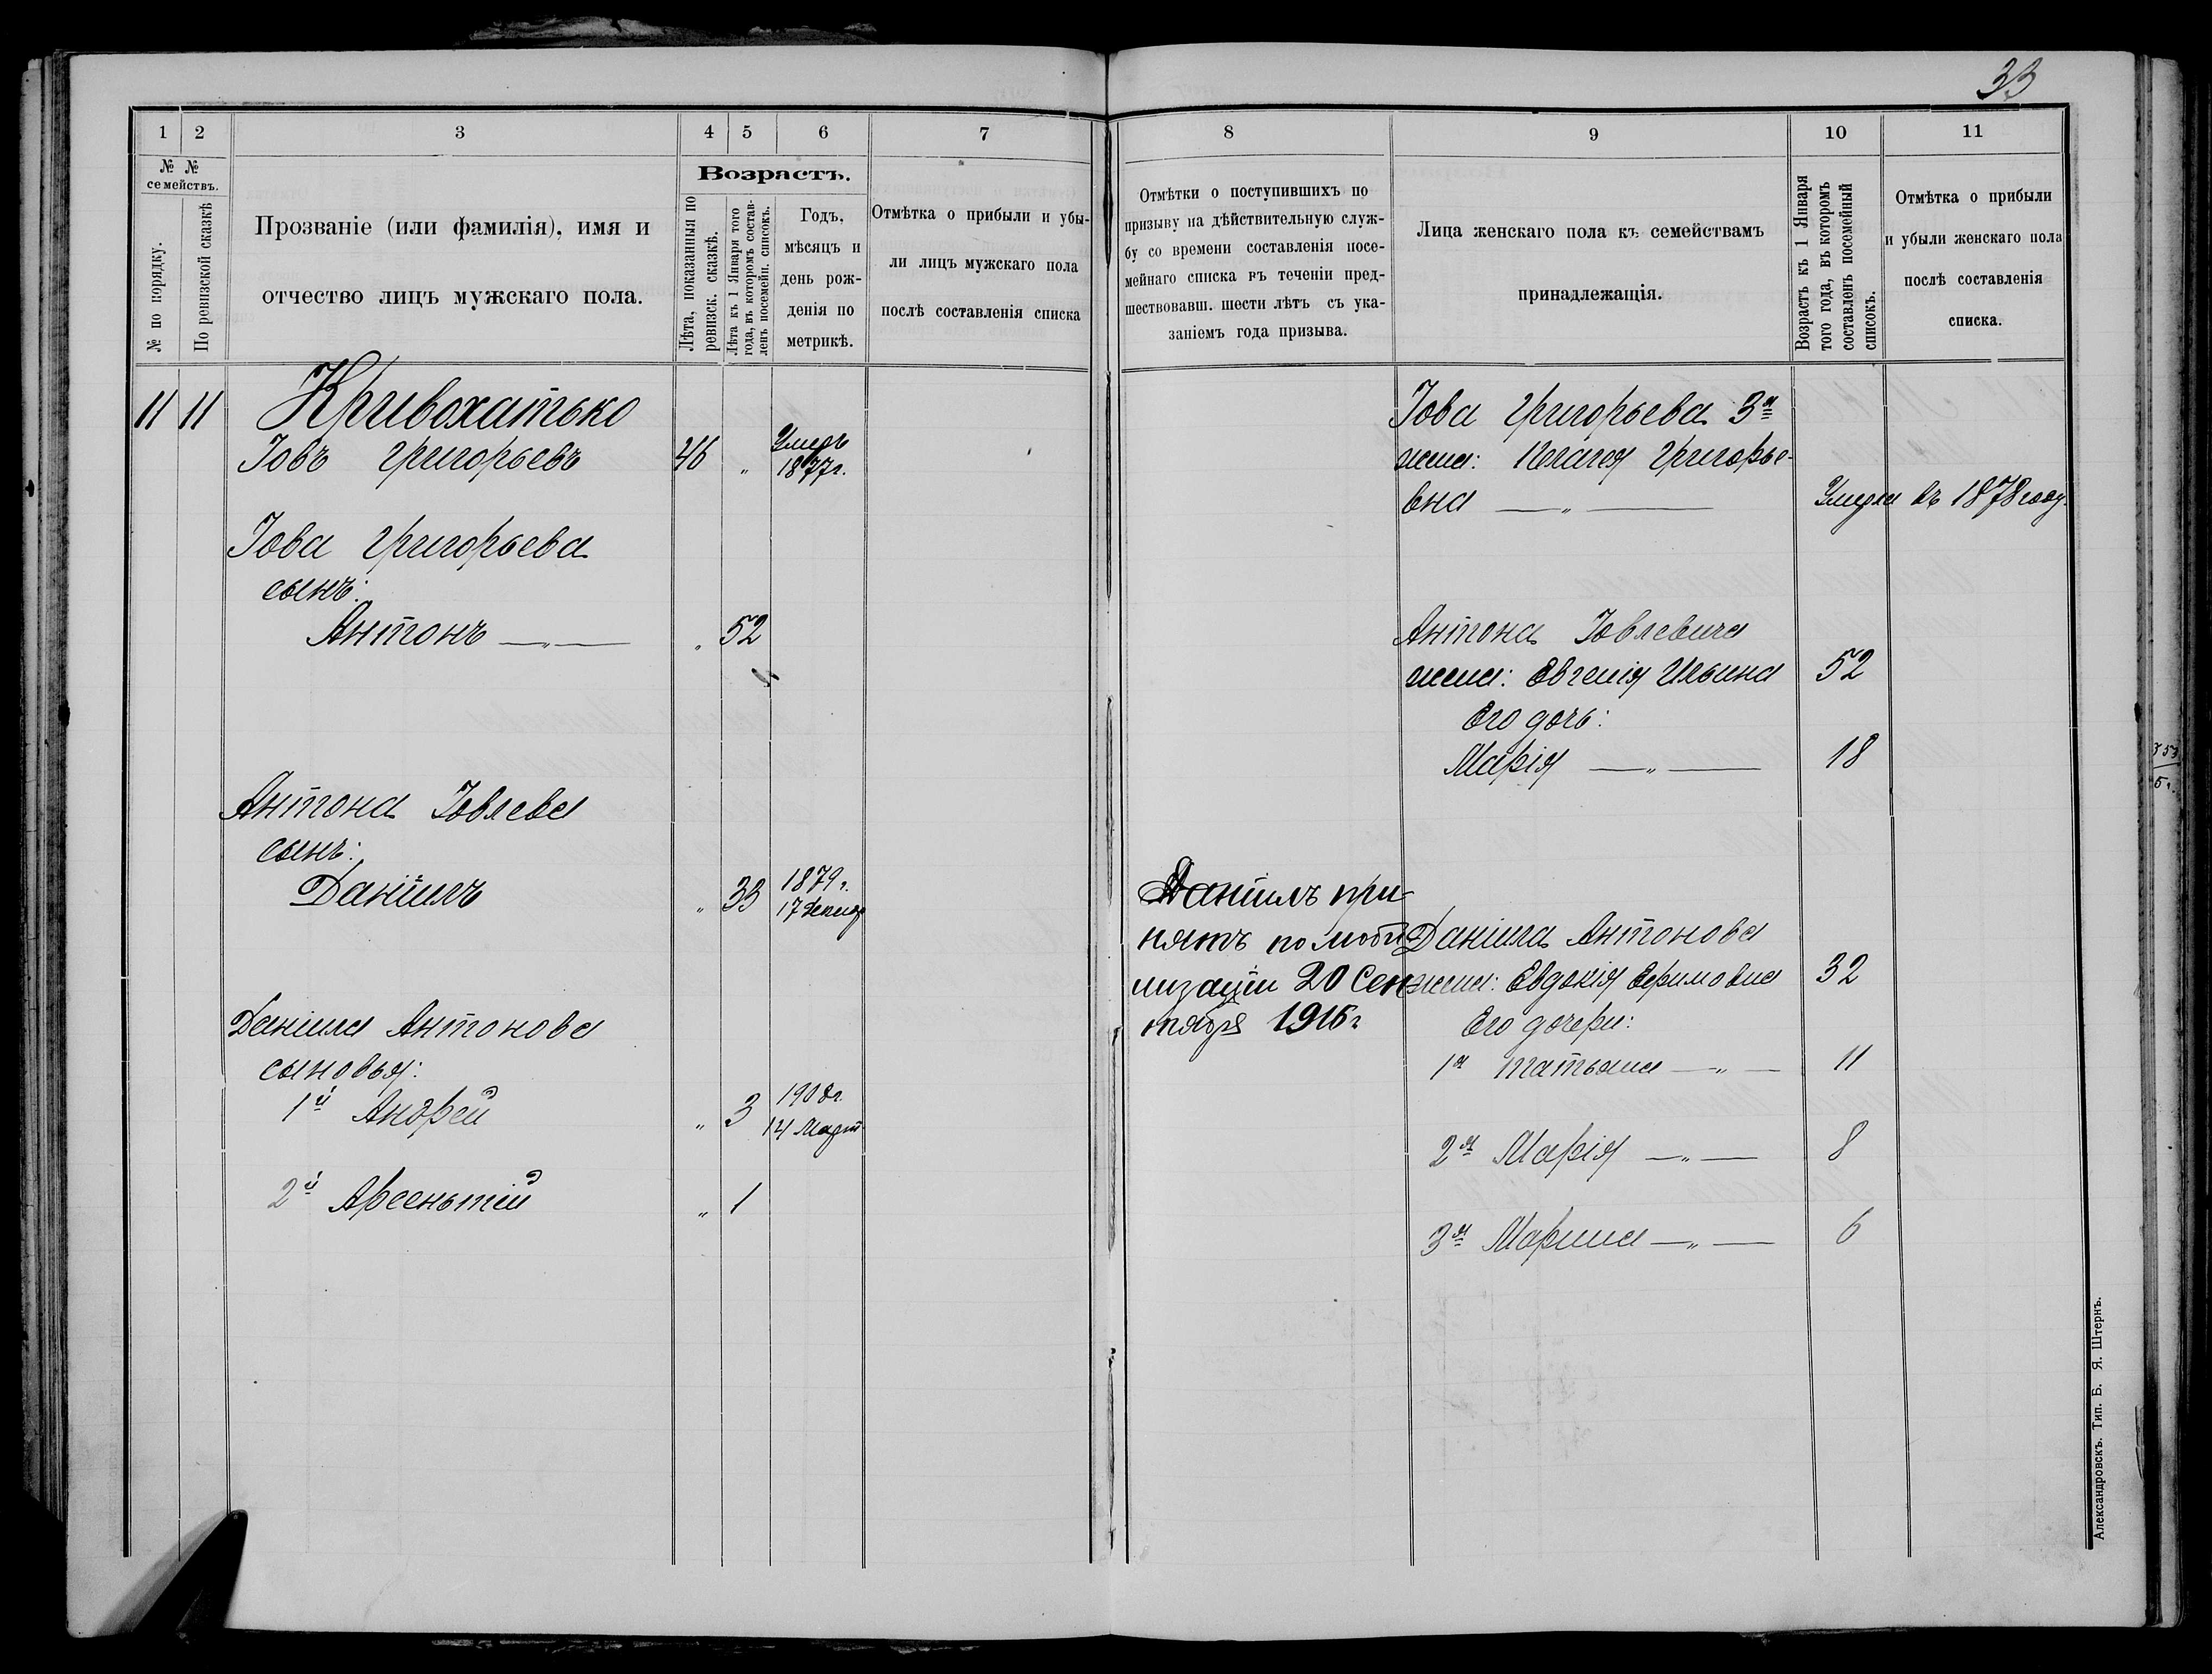 33
1 2 3 4 5 6 7
№ №
семействъ.
№ по порядку.
По ревизской сказкѣ
Прозваніе (или фамилія), имя и
отчество лицъ мужскаго пола.
Возрастъ.
Лѣта, показанныя по
ревизск. сказкѣ.
Лѣта къ 1 Января того
года, въ которомъ состав-
ленъ посемейн. списокъ.
Годъ,
мѣсяцъ и
день рож-
денія по
метрикѣ.
Отмѣтка о прибыли и убы-
ли лицъ мужскаго пола
послѣ составленія списка
11 11 Кривохатько
Іовъ Григорьевъ 46 „ Умеръ
1877г.
Іова Григорьева
сынъ:
Антонъ —„— „ 52
Антона Іовлева
сынъ:
Даніилъ „ 33 1879 г.
17 Декаб
Даніила Антонова
сыновья:
1й Андрей „ 3 1908г.
14 Март
2й Арсеньтій „ 1
8 9 10 11
Отмѣтки о поступившихъ по
призыву на дѣйствительную служ-
бу со времени составленія посе-
мейнаго списка въ теченіи пред-
шествовавш. шести лѣтъ съ ука-
заніемъ года призыва.
Лица женскаго пола къ семействамъ
принадлежащія.
Возрастъ къ 1 Января
того года, въ которомъ
составленъ посемейный
списокъ.
Отмѣтка о прибыли
и убыли женскаго пола
послѣ составленія
списка.
Іова Григорьева 3я
жена: Пелагея Григорье-
вна —„— Умерла въ 1878 году.
Антона Іовлевича
жена: Евгенія Ильина 52
Его дочь:
Марія —„— 18
Даніилъ при
нятъ по моби
лизаціи 20 Сен
тября 1916 г
Даніила Антонова
жена: Евдокія Ефимовна 32
Его дочери:
1я Татьяна —„— 11
2я Марія —„— 8
3я Марина —„— 6
Александровскъ. Тип. Б. Я. Штернъ.